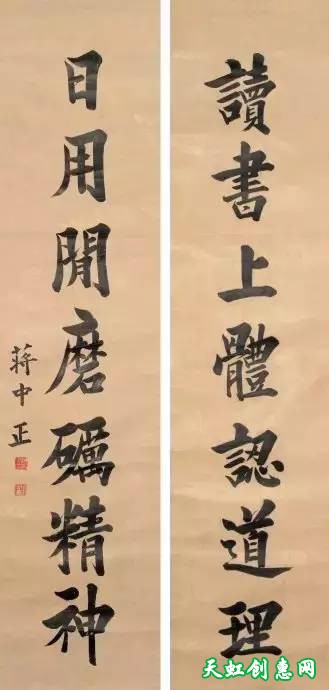 讀書上體認道理
日用閒磨礪精神
蔣中正
天虹创惠网